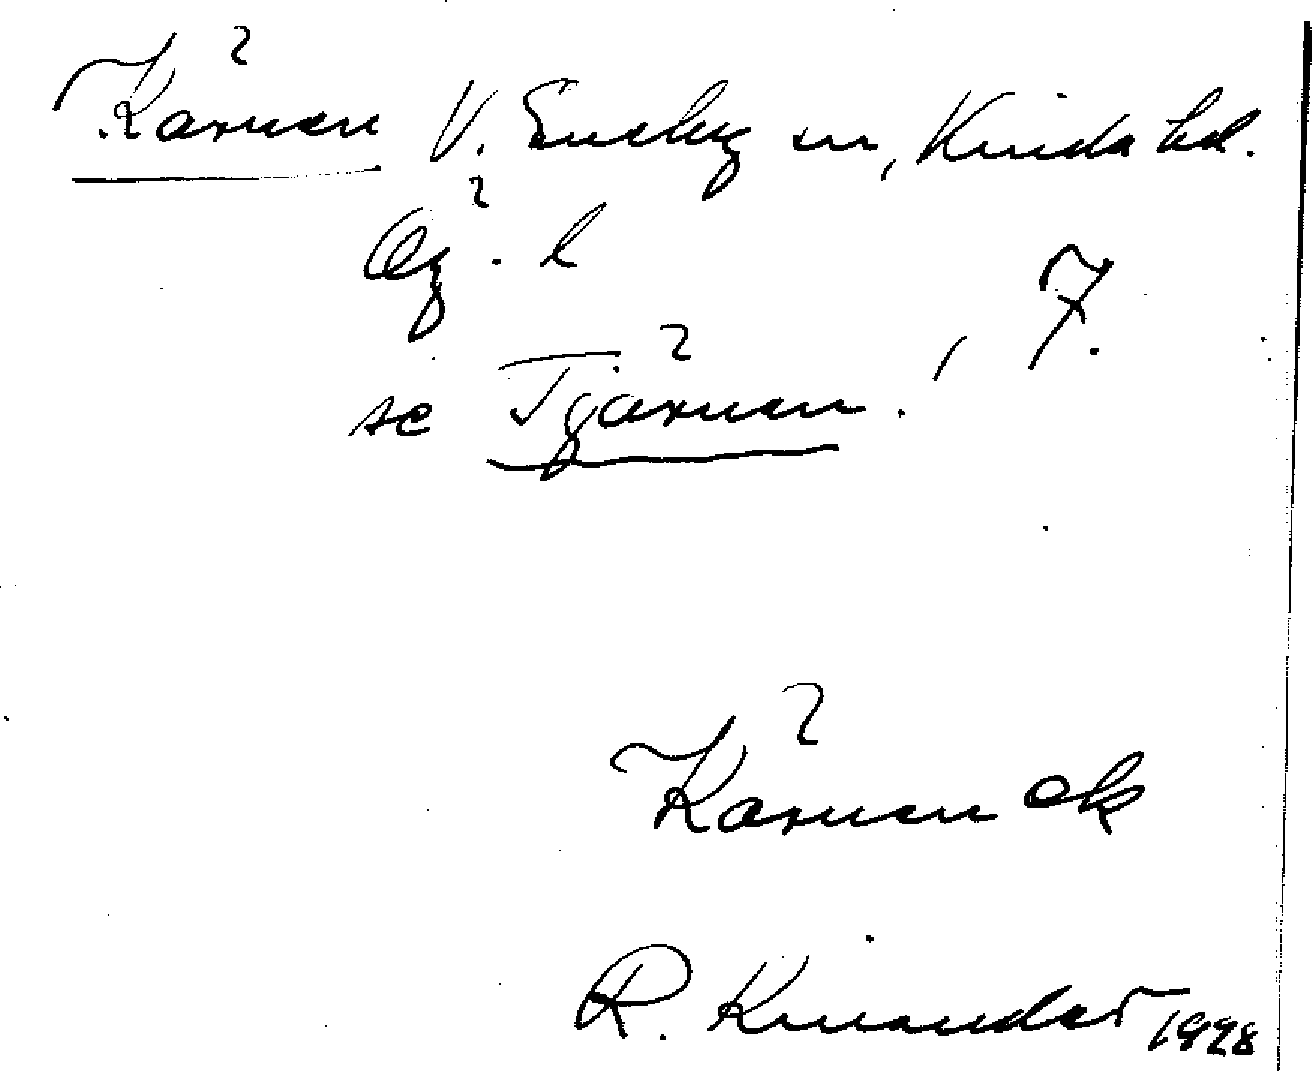 Kärnen V. Eneby sn, Kinda hd.
Ög. l
se Tjärnen. / 7.
Kärnen ek
R. Kinander 1928